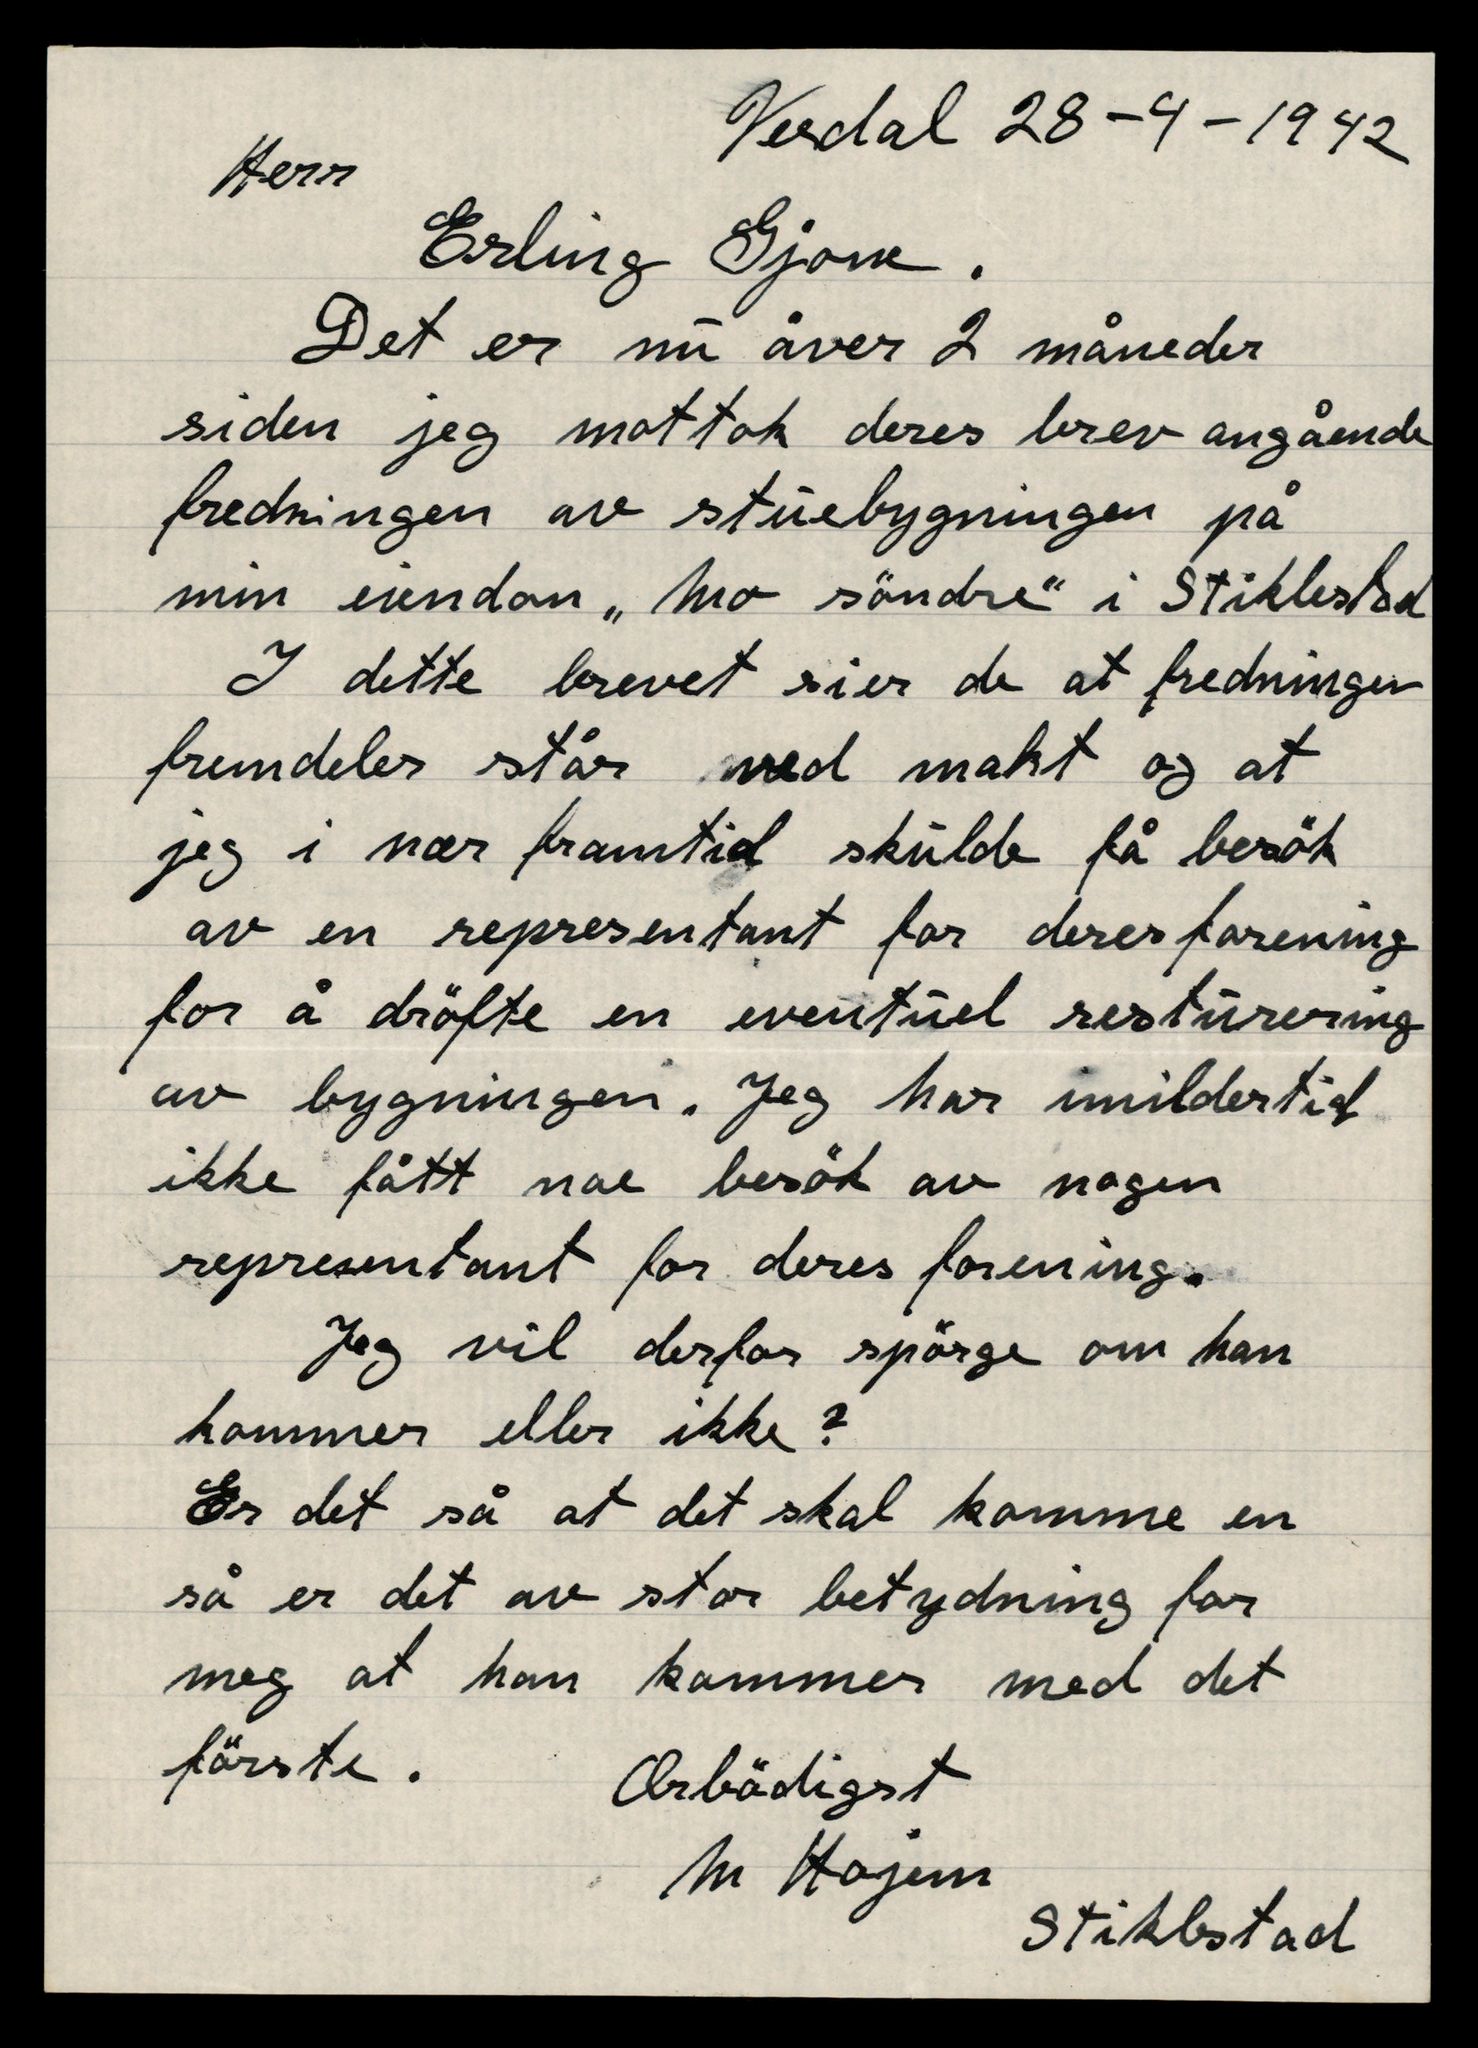 Verdal 28-4-1942
Herr
Erling Gjone.
Det er nū åver 2 måneder
siden jeg mottok deres brev angående
fredningen av stūebygningen på
min eiendon „Mo söndre“ i Stiklestad
I dette brevet sier de at fredningen
fremdeles står ved makt og at
jeg i nær framtid skūlde få besök
av en representant for deres forening
for å dröfte en eventūel restūrering
av bygningen. Jeg har imildertid
ikke fått noe besök av nogen
representant for deres forening.
Jeg vil derfor spörge om han
kommer eller ikke?
Er det så at det skal komme en
så er det av stor betydning for
meg at han kommer med det
förste.
Ærbödigst
M Hojem
Stiklestad